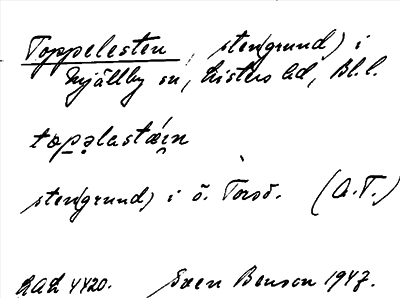 Toppelesten, sten(grund) i
Mjällby sn, Listers hd, Bl. l.
topəlastæ̀in
sten(grund) i ö. Torsö. (A.T.)
LAL 4420. Sven Benson 1947.